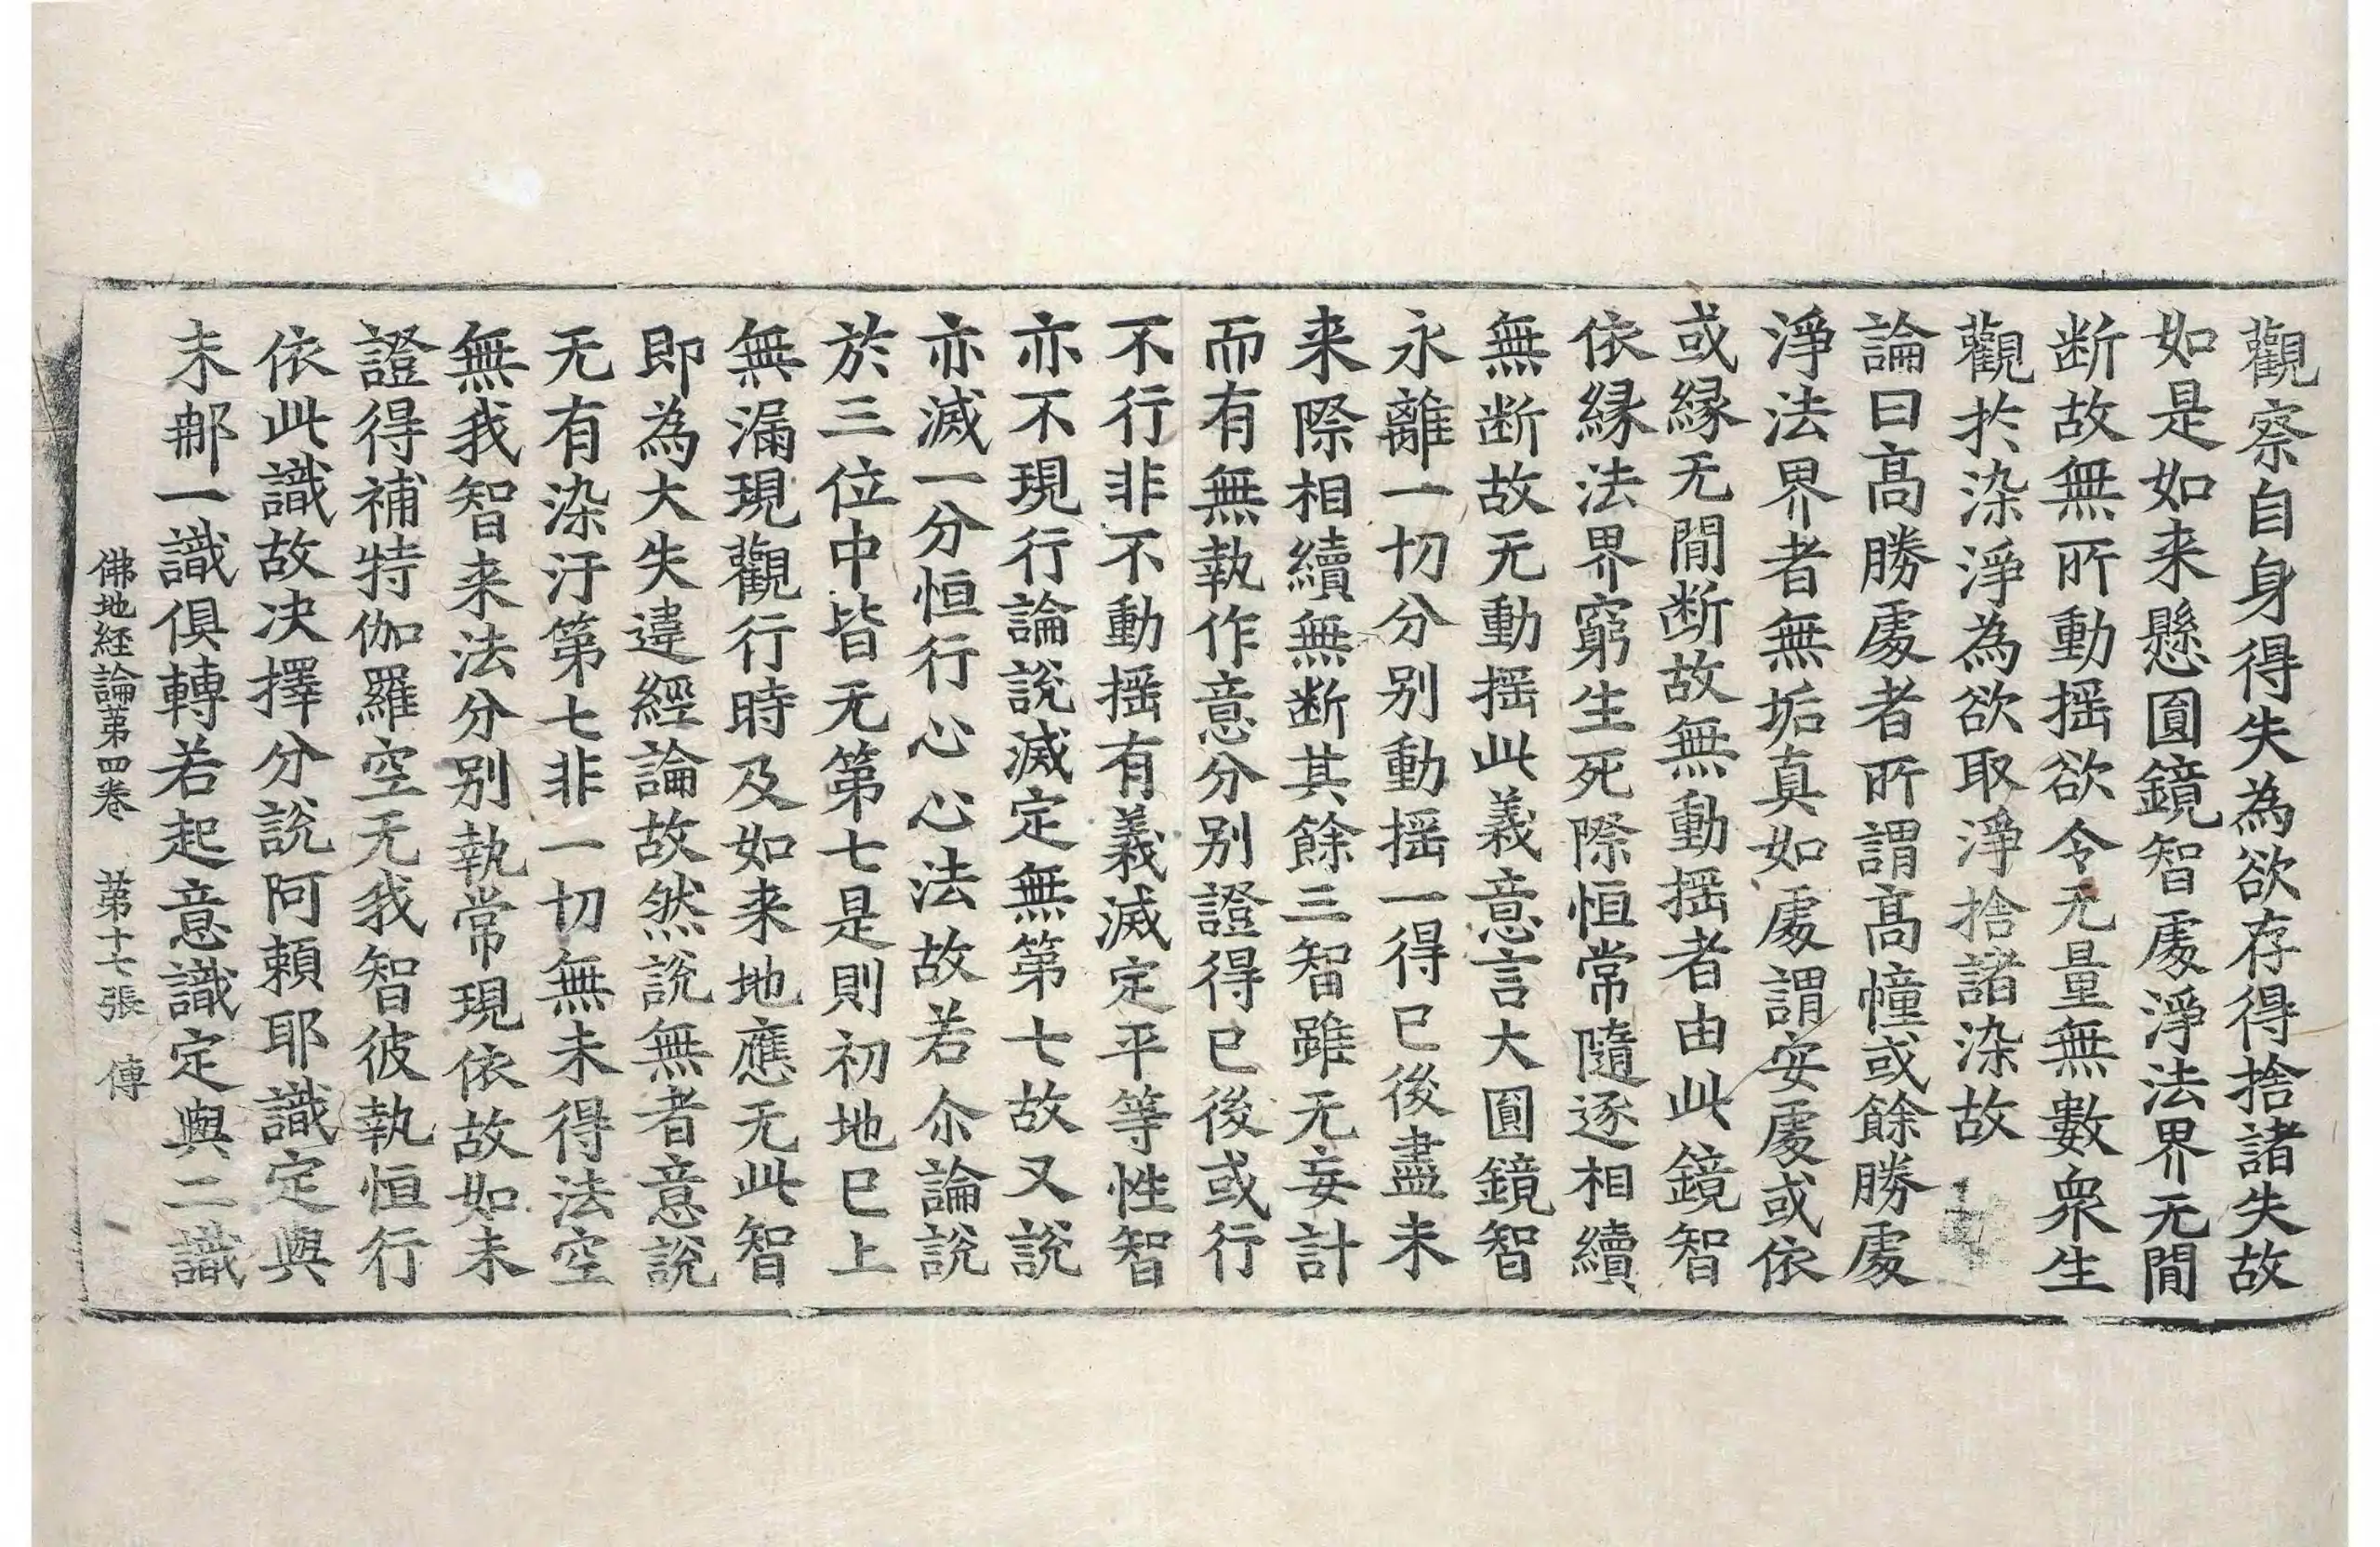 觀察自身得失為欲存得捨諸失故
如是如来懸圓鏡智處淨法界无閒
断故無所動揺欲令无量無數衆生
觀扵染淨為欲取淨捨諸染故
論曰髙勝處者所謂髙幢或餘勝處
淨法界者無垢真如處謂安處或依
或縁无閒断故無動揺者由此鏡智
依縁法界窮生死際恒常隨逐相續
無断故无動揺此義意言大圓鏡智
永離一切分别動揺一得已後盡未
来際相續無断其餘三智雖无妄計
而有無執作意分别證得已後或行
不行非不動揺有義滅定平等性智
亦不現行論說滅定無第七故又說
亦滅一分恒行心心法故若尒論說
於三位中皆无第七是則初地已上
無漏現觀行時及如来地應无此智
即為大失違經論故然說無者意說
无有染汙第七非一切無未得法空
無我智来法分别執常現依故如未
證得補特伽羅空无我智彼執恒行
依此識故决擇分說阿賴耶識定與
末郍一識俱轉若起意識定與二識
佛地経論第四卷　第十七張　傳